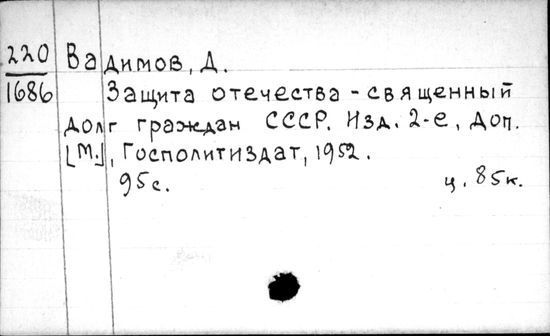 220 Вадимов, Д.
1686 Защита отечества - священный
долг граждан СССР. Изд. 2-е, доп.
[М.], Госполитиздат, 1952.
95с. ц. 85к.